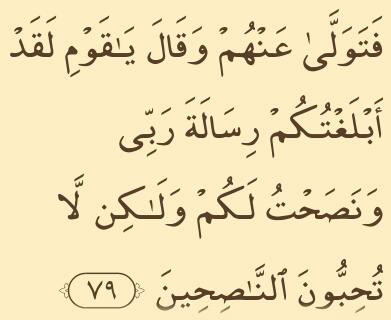 فَتَوَلَّىٰ عَنْهُمْ وَقَالَ يَـٰقَوْمِ لَقَدْ
أَبْلَغْتُكُمْ رِسَالَةَ رَبِّى
وَنَصَحْتُ لَكُمْ وَلَـٰكِن لَّا
تُحِبُّونَ ٱلنَّـٰصِحِينَ ٧٩